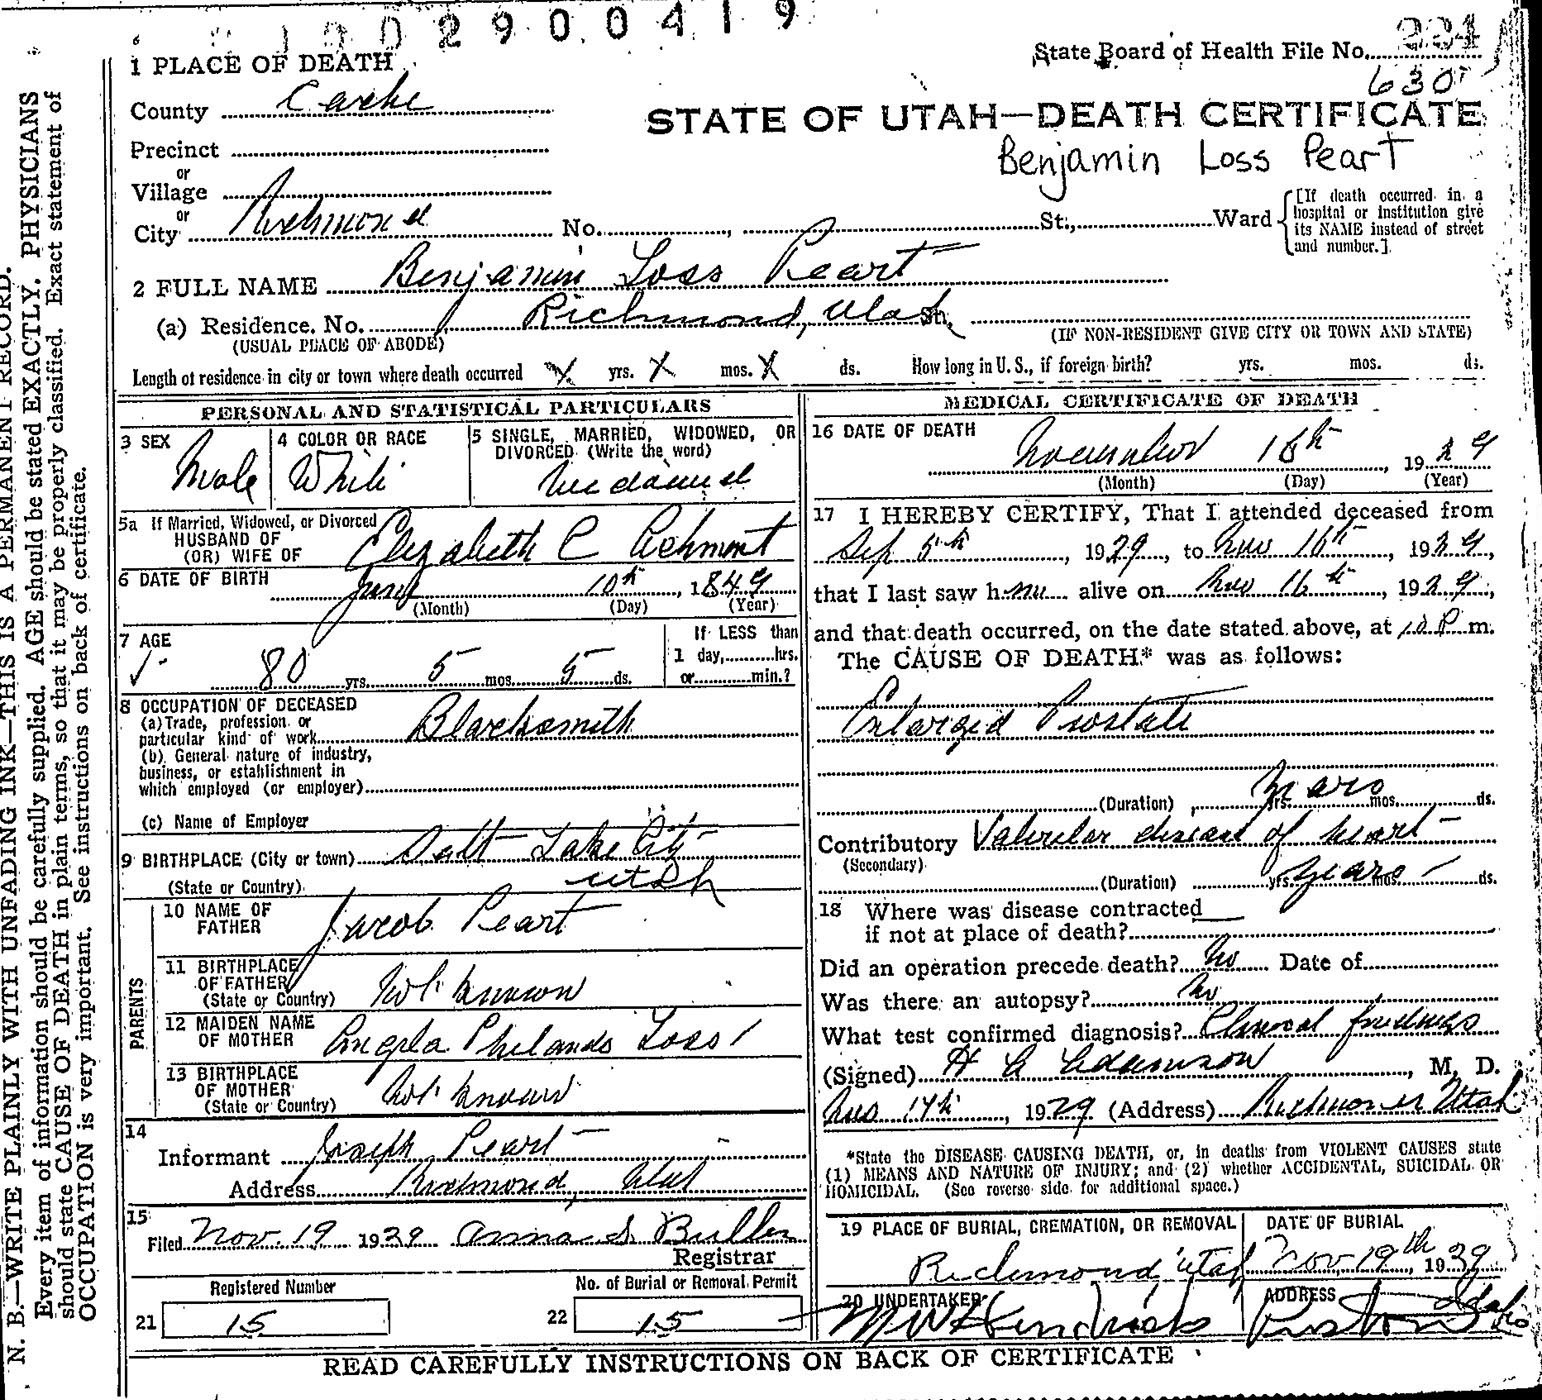 2900419
State Board of Health File No. 224
630
1 PLACE OF DEATH
County Cache
STATE OF UTAH—DEATH CERTIFICATE
Precinct
Benjamin Loss Peart
or
Village
or
City Richmond No. St., Ward
[If death occurred in a hospital or institution give its NAME instead of street and number.]
2 FULL NAME Benjamin Loss Peart
(a) Residence. No. Richmond, Utah St.
(USUAL PLACE OF ABODE) (IF NON-RESIDENT GIVE CITY OR TOWN AND STATE)
Length of residence in city or town where death occurred X yrs. X mos. X ds. How long in U. S., if foreign birth? yrs. mos. ds.
PERSONAL AND STATISTICAL PARTICULARS
3 SEX
Male
4 COLOR OR RACE
White
5 SINGLE, MARRIED, WIDOWED, OR DIVORCED (Write the word)
Widowed
5a If Married, Widowed, or Divorced
HUSBAND OF
(OR) WIFE OF Elizabeth C
6 DATE OF BIRTH June 10th, 1849
(Month) (Day) (Year)
7 AGE
80 yrs. 5 mos. 5 ds.
If LESS than
1 day, hrs.
or min.?
8 OCCUPATION OF DECEASED
(a) Trade, profession or
particular kind of work Blacksmith
(b) General nature of industry,
business, or establishment in
which employed (or employer)
(c) Name of Employer
9 BIRTHPLACE (City or town) Salt Lake City
(State or Country) Utah
PARENTS
10 NAME OF
FATHER Jacob Peart
11 BIRTHPLACE
OF FATHER
(State or Country) Not known
12 MAIDEN NAME
OF MOTHER Loss
13 BIRTHPLACE
OF MOTHER
(State or Country) Not known
14
Informant Joseph Peart
Address Richmond, Utah
15
Filed Nov. 19 1929 Anna S.
Registrar
Registered Number
21 15
No. of Burial or Removal Permit
22 15
MEDICAL CERTIFICATE OF DEATH
16 DATE OF DEATH
November 16th, 1929
(Month) (Day) (Year)
17 I HEREBY CERTIFY, That I attended deceased from
Sep 5th, 1929, to Nov 16th, 1929,
that I last saw him alive on Nov 16th, 1929,
and that death occurred, on the date stated above, at 10 P m.
The CAUSE OF DEATH* was as follows:
Enlarged Prostate
(Duration) years yrs. mos. ds.
Contributory Valvular disease of heart
(Secondary)
(Duration) years yrs. mos. ds.
18 Where was disease contracted
if not at place of death?
Did an operation precede death? No Date of
Was there an autopsy? No
What test confirmed diagnosis? Clinical findings
(Signed) Adamson, M. D.
Nov 17th, 1929 (Address) Richmond Utah
*State the DISEASE CAUSING DEATH, or, in deaths from VIOLENT CAUSES state
(1) MEANS AND NATURE OF INJURY; and (2) whether ACCIDENTAL, SUICIDAL OR
HOMICIDAL. (See reverse side for additional space.)
19 PLACE OF BURIAL, CREMATION, OR REMOVAL
Richmond, Utah
DATE OF BURIAL
Nov. 19th, 1929
20 UNDERTAKER
Hendricks
ADDRESS
Preston Idaho
READ CAREFULLY INSTRUCTIONS ON BACK OF CERTIFICATE
N. B.—WRITE PLAINLY WITH UNFADING INK—THIS IS A PERMANENT RECORD.
Every item of information should be carefully supplied. AGE should be stated EXACTLY. PHYSICIANS
should state CAUSE OF DEATH in plain terms, so that it may be properly classified. Exact statement of
OCCUPATION is very important. See instructions on back of certificate.